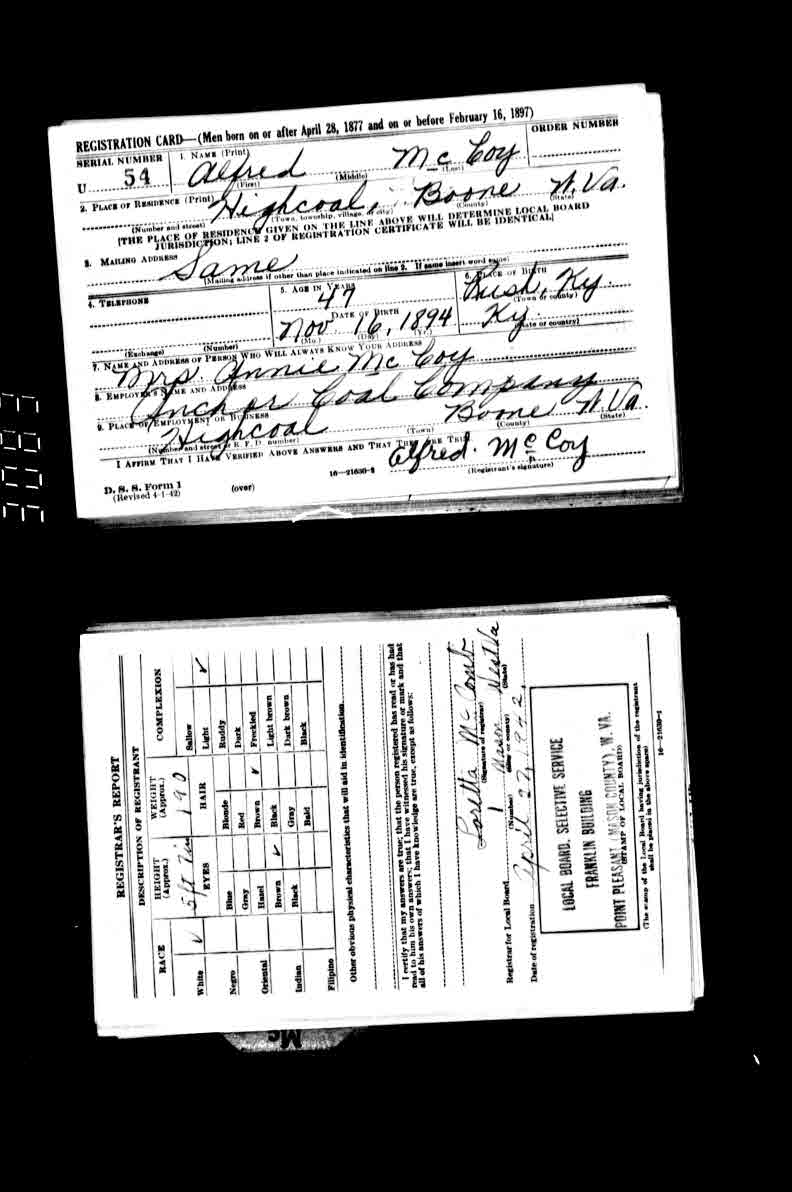 REGISTRATION CARD—(Men born on or after April 28, 1877 and on or before February 16, 1897)
SERIAL NUMBER
1. NAME (Print)
ORDER NUMBER
U 54
Alfred Mc Coy
(First) (Middle) (Last)
2. PLACE OF RESIDENCE (Print)
Highcoal, Boone W. Va.
(Number and street) (Town, township, village, or city) (County) (State)
[THE PLACE OF RESIDENCE GIVEN ON THE LINE ABOVE WILL DETERMINE LOCAL BOARD
JURISDICTION; LINE 2 OF REGISTRATION CERTIFICATE WILL BE IDENTICAL]
3. MAILING ADDRESS
Same
[Mailing address if other than place indicated on line 2. If same insert word same]
4. TELEPHONE
5. AGE IN YEARS
6. PLACE OF BIRTH
47
Rush, Ky.
(Town or county)
DATE OF BIRTH
Nov 16, 1894
Ky.
(Exchange) (Number)
(Mo.) (Day) (Yr.)
(State or country)
7. NAME AND ADDRESS OF PERSON WHO WILL ALWAYS KNOW YOUR ADDRESS
Mrs. Annie Mc Coy
8. EMPLOYER'S NAME AND ADDRESS
Anchor Coal Company
9. PLACE OF EMPLOYMENT OR BUSINESS
Highcoal Boone W. Va.
(Number and street or R. F. D. number) (Town) (County) (State)
I AFFIRM THAT I HAVE VERIFIED ABOVE ANSWERS AND THAT THEY ARE TRUE.
Alfred. Mc Coy
D. S. S. Form 1
(Revised 4-1-42)
(over)
16—21630-2
(Registrant's signature)
REGISTRAR'S REPORT
DESCRIPTION OF REGISTRANT
RACE
HEIGHT (Approx.)
WEIGHT (Approx.)
COMPLEXION
White ✓
5 ft 7 in
190
EYES
HAIR
Sallow
Light ✓
Negro
Blue
Blonde
Ruddy
Gray
Red
Dark
Oriental
Hazel
Brown ✓
Freckled
Brown ✓
Black
Light brown
Indian
Black
Gray
Dark brown
Bald
Black
Filipino
Other obvious physical characteristics that will aid in identification
I certify that my answers are true; that the person registered has read or has had
read to him his own answers; that I have witnessed his signature or mark and that
all of his answers of which I have knowledge are true, except as follows:
Loretta McComb
(Signature of registrar)
Registrar for Local Board 1 Mason West Va
(Number) (City or county) (State)
Date of registration April 27, 1942
LOCAL BOARD. SELECTIVE SERVICE
FRANKLIN BUILDING
POINT PLEASANT (MASON COUNTY), W. VA.
(STAMP OF LOCAL BOARD)
(The stamp of the Local Board having jurisdiction of the registrant
shall be placed in the above space)
16—21630-1
Mc